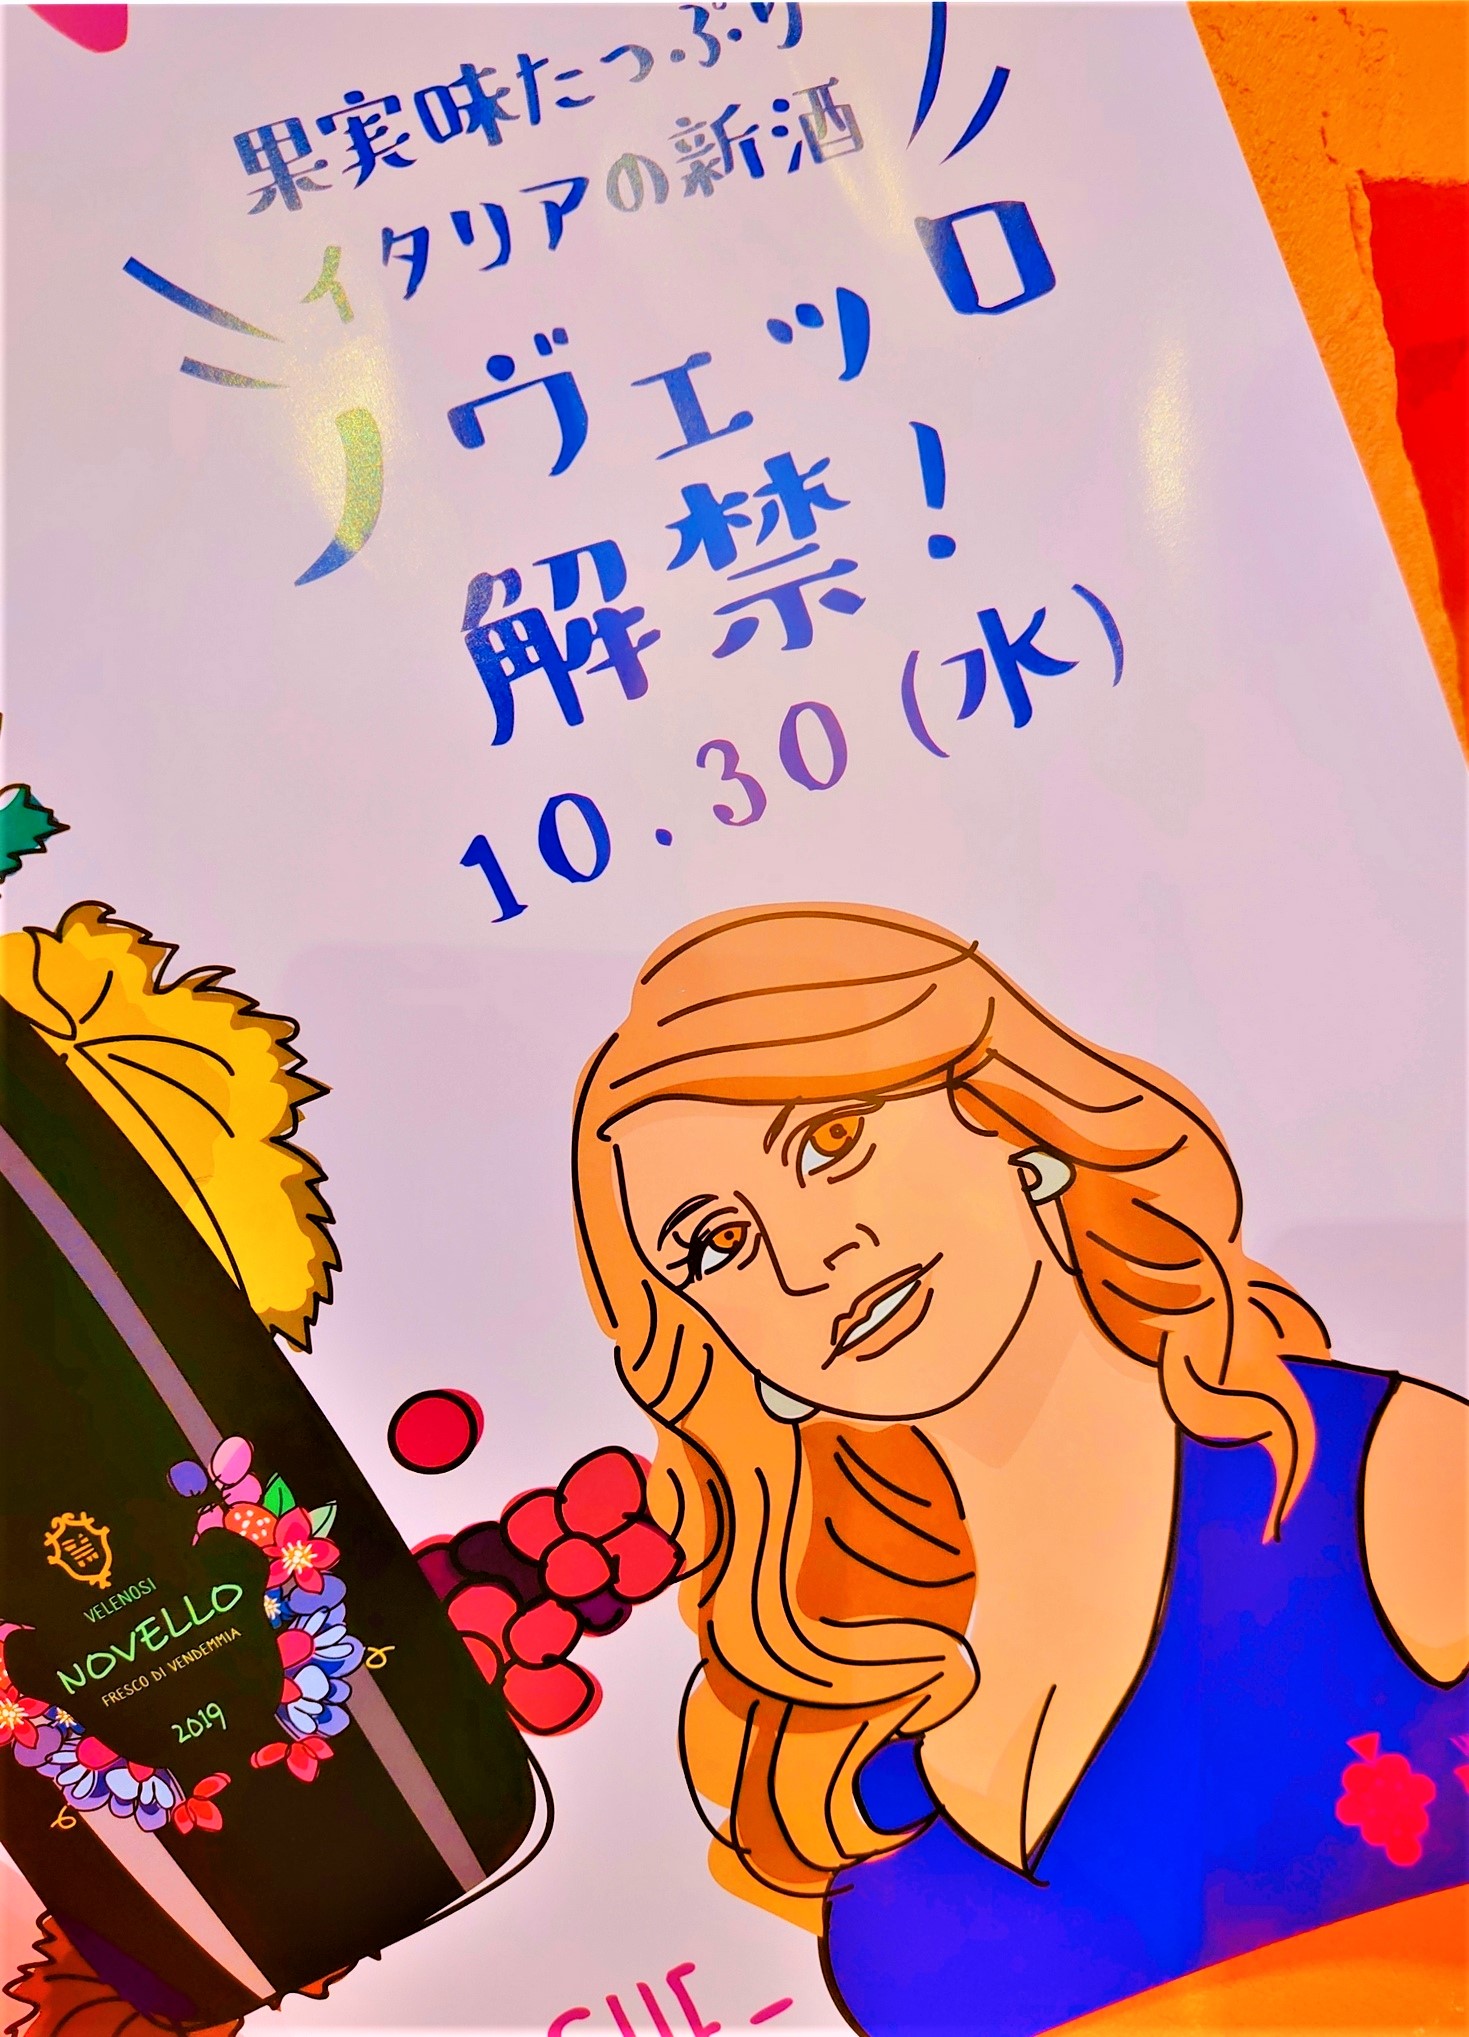 果実味たっぷり
イタリアの新酒
ノヴェッロ
解禁！
10.30(水)
VELENOSI
NOVELLO
FRESCO DI VENDEMMIA
2019